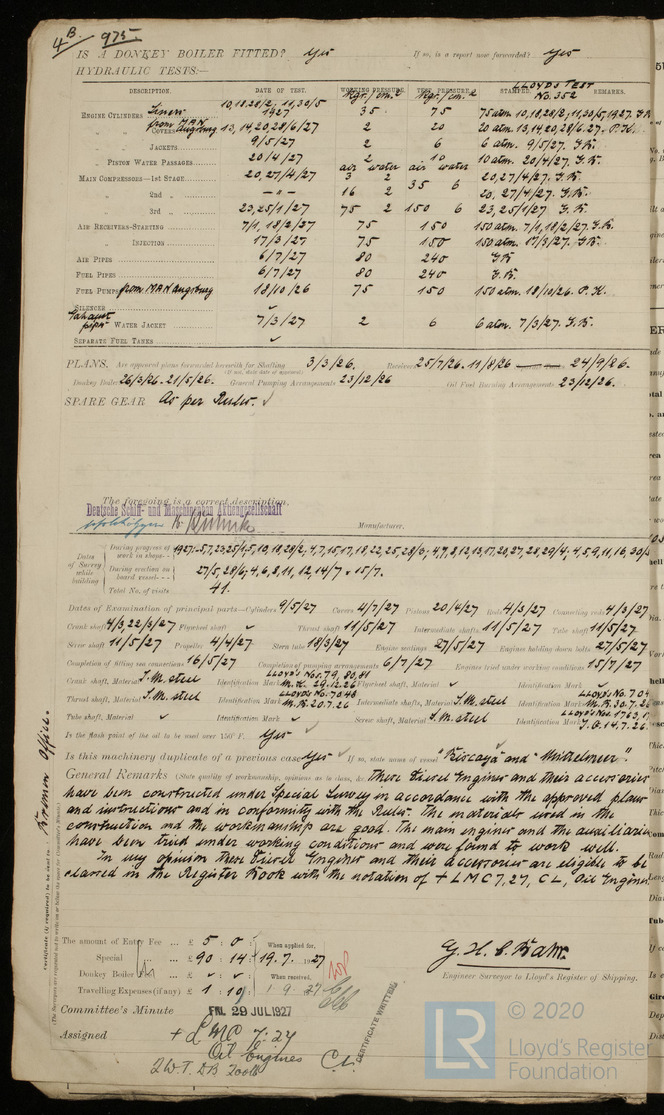 4B. 975
IS A DONKEY BOILER FITTED? Yes If so, is a report now forwarded? Yes
HYDRAULIC TESTS:—
DESCRIPTION. DATE OF TEST. WORKING PRESSURE. Kgr/cm.2 TEST PRESSURE. Kgr/cm.2 STAMPED. LLOYDS TEST No. 352 REMARKS.
ENGINE CYLINDERS Liners 10,18,28/2, 11,30/5 1927 35 75 75 atm. 10,18,28/2, 11,30/5,1927. G.K.
" COVERS from MAN Augsburg 13,14,20,28/6/27 2 20 20 atm. 13,14,20,28/6.27. P.K.
" JACKETS 9/5/27 2 6 6 atm. 9/5/27. G.K.
" PISTON WATER PASSAGES 20/4/27 2 10 10 atm. 20/4/27. G.K.
air water air water
MAIN COMPRESSORS—1st STAGE 20,27/4/27 3 2 20,27/4/27. G.K.
" 2nd " — " — 16 2 35 6 20, 27/4/27. G.K.
" 3rd " 23,25/1/27 75 2 150 6 23,25/1/27 G.K.
AIR RECEIVERS—STARTING 7/1, 18/2/27 75 150 150 atm. 7/1, 18/2/27. G.K.
" INJECTION 17/3/27 75 150 150 atm. 17/3/27. G.K.
AIR PIPES 6/7/27 80 240 G.K.
FUEL PIPES 6/7/27 80 240 G.K.
FUEL PUMPS from MAN Augsburg 18/10/26 75 150 150 atm. 18/10/26. P.K.
SILENCER ✓
Exhaust pipe WATER JACKET 7/3/27 2 6 6 atm. 7/3/27. G.K.
SEPARATE FUEL TANKS ✓
PLANS. Are approved plans forwarded herewith for Shafting 3/3/26. Receivers 25/7/26. 11/8/26 24/9/26.
(If not, state date of approval)
Donkey Boiler 26/3/26. 21/5/26. General Pumping Arrangements 23/12/26 Oil Fuel Burning Arrangements 23/12/26.
SPARE GEAR As per Rules. ✓
The foregoing is a correct description,
Deutsche Schiff- und Maschinenbau Aktiengesellschaft
Manufacturer.
Dates of Survey while building
During progress of work in shops - -
During erection on board vessel - - - 27/5, 28/6, 4,6,8,11,12,14/7 & 15/7.
Total No. of visits 41.
Dates of Examination of principal parts—Cylinders 9/5/27 Covers 4/7/27 Pistons 20/4/27 Rods 4/3/27 Connecting rods 4/3/27
Crank shaft 4/3, 22/3/27 Flywheel shaft ✓ Thrust shaft 11/5/27 Intermediate shafts 11/5/27 Tube shaft 11/5/27
Screw shaft 11/5/27 Propeller 4/4/27 Stern tube 18/3/27 Engine seatings 27/5/27 Engines holding down bolts 27/5/27
Completion of fitting sea connections 16/5/27 Completion of pumping arrangements 6/7/27 Engines tried under working conditions 15/7/27
Crank shaft, Material S.M. steel Identification Mark LLOYDS Nos. 79, 80, 81 M.K. 29.12.26 Flywheel shaft, Material ✓ Identification Mark ✓
Thrust shaft, Material S.M. steel Identification Mark LLOYDS No. 7048 M.R. 20.7.26 Intermediate shafts, Material S.M. steel Identification Marks LLOYDS No. 704 M.R. 30.7.26
Tube shaft, Material ✓ Identification Mark ✓ Screw shaft, Material S.M. steel Identification Mark LLOYDS Nos. 1763, 14.7.26.
Is the flash point of the oil to be used over 150° F. Yes ✓
Is this machinery duplicate of a previous case Yes ✓ If so, state name of vessel "Biscaya" and "Mittelmeer".
General Remarks (State quality of workmanship, opinions as to class, &c. These Diesel Engines and their accessories
have been constructed under Special Survey in accordance with the approved plans
and instructions and in conformity with the Rules. The materials used in the
construction and the workmanship are good. The main engines and the auxiliaries
have been tried under working conditions and were found to work well.
In my opinion these Diesel Engines and their Accessories are eligible to be
classed in the Register Book with the notation of + LMC 7,27, CL, Oil Engines
Certificate (if required) to be sent to Bremen Office.
(The Surveyors are requested not to write on or below the space for Committee's Minute.)
The amount of Entry Fee ... £ 5 : 0 : When applied for,
Special ... £ 90 : 14 : 19.7.1927
Donkey Boiler ... £ ✓ : ✓ : When received,
Travelling Expenses (if any) £ 1 : 10 : 1 9 1927
Engineer Surveyor to Lloyd's Register of Shipping.
Committee's Minute FRI. 29 JUL 1927
Assigned + LMC 7.27
Oil Engines
C.L.
2 W.T. DB
CERTIFICATE WRITTEN
© 2020
LR
Lloyd's Register
Foundation